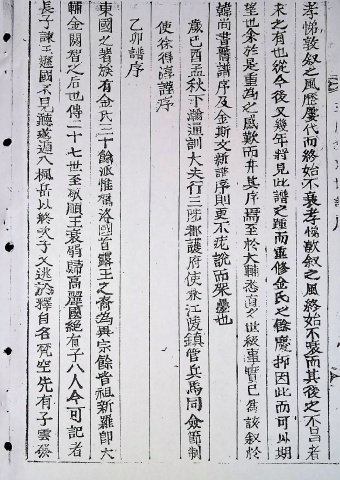 孝悌敦叙之風歷屢代而終始不衰孝悌敦叙之風終始不衰而其後之不昌者
未之有也從今後又幾年將見此譜之踵而重修金氏之餘慶抑因此而可以期
望也余於是重為之感歎而弁其序焉至於大輔悉育之世級事實已為該叙於
韓尚書舊譜序及金斯文新譜序則更不茫說而架疊也
歲己酉孟秋下澣通訓大夫行三陟都護府使兼江陵鎮管兵馬同僉節制
使徐得謹序
乙卯譜序
東國之著族有金氏三十餘派惟駕洛國首露王之裔為異宗餘皆祖新羅卽大
輔金閼智之后也傳二十七世至敬順王衰弱歸高麗國絕有子八人今可記者
長子諫王遜國不見聽遂遁入楓岳以終次子又逃於釋自名梵空先有子雲發